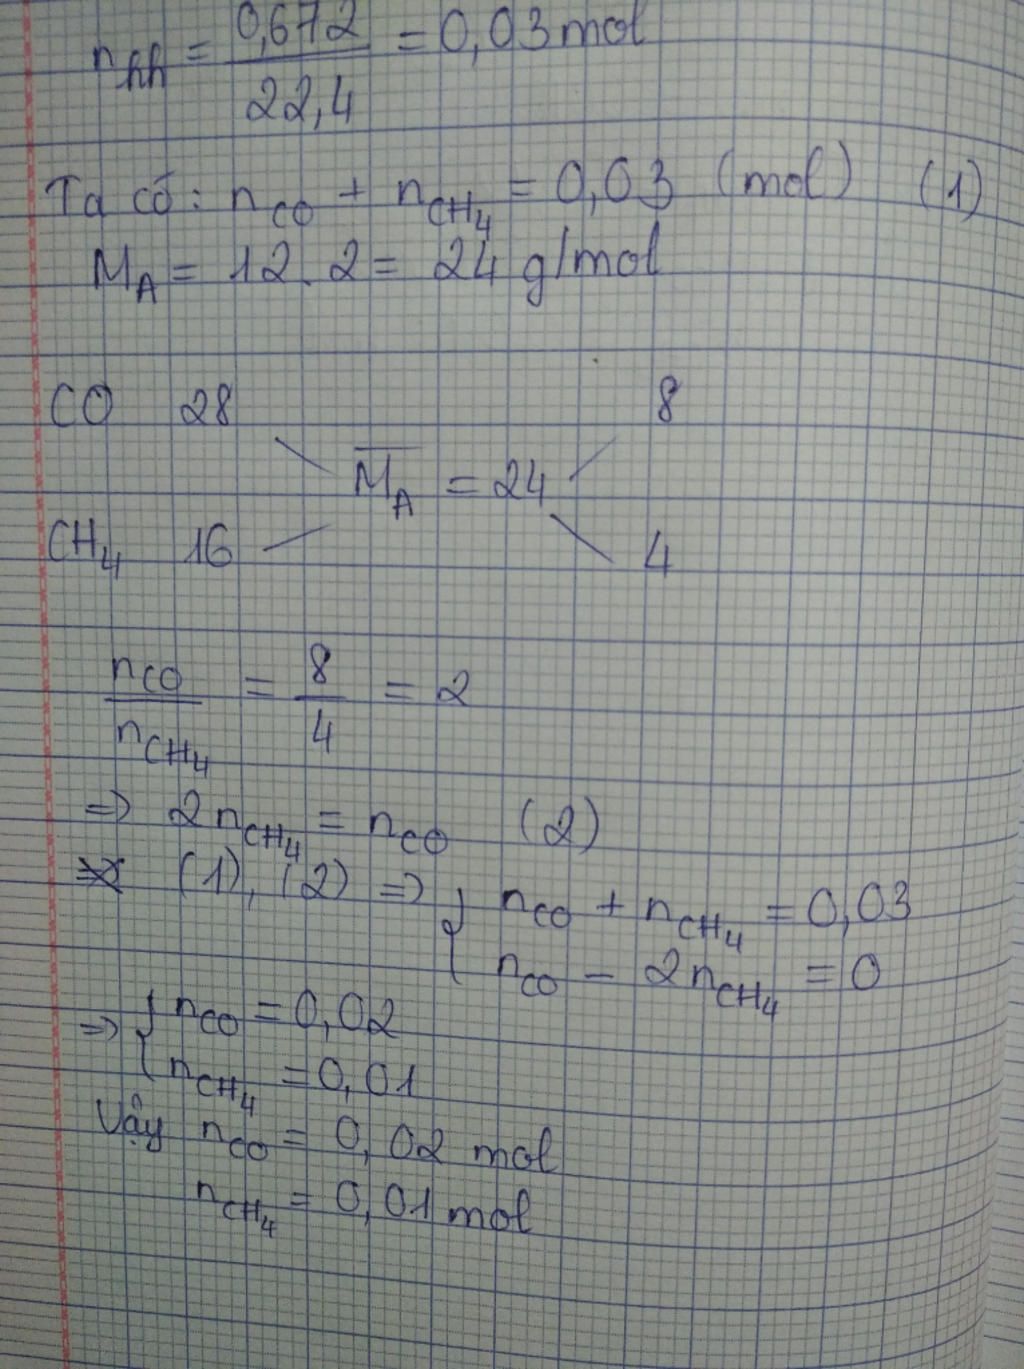 n_hh = 0,672/22,4 = 0,03 mol
Ta có: n_CO + n_CH₄ = 0,03 (mol) (1)
M_A = 12.2 = 24 g/mol
CO 28 8
M̅_A = 24
CH₄ 16 4
n_CO/n_CH₄ = 8/4 = 2
=> 2n_CH₄ = n_CO (2)
(1), (2) => { n_CO + n_CH₄ = 0,03
n_CO - 2n_CH₄ = 0
=> { n_CO = 0,02
n_CH₄ = 0,01
Vậy n_CO = 0,02 mol
n_CH₄ = 0,01 mol